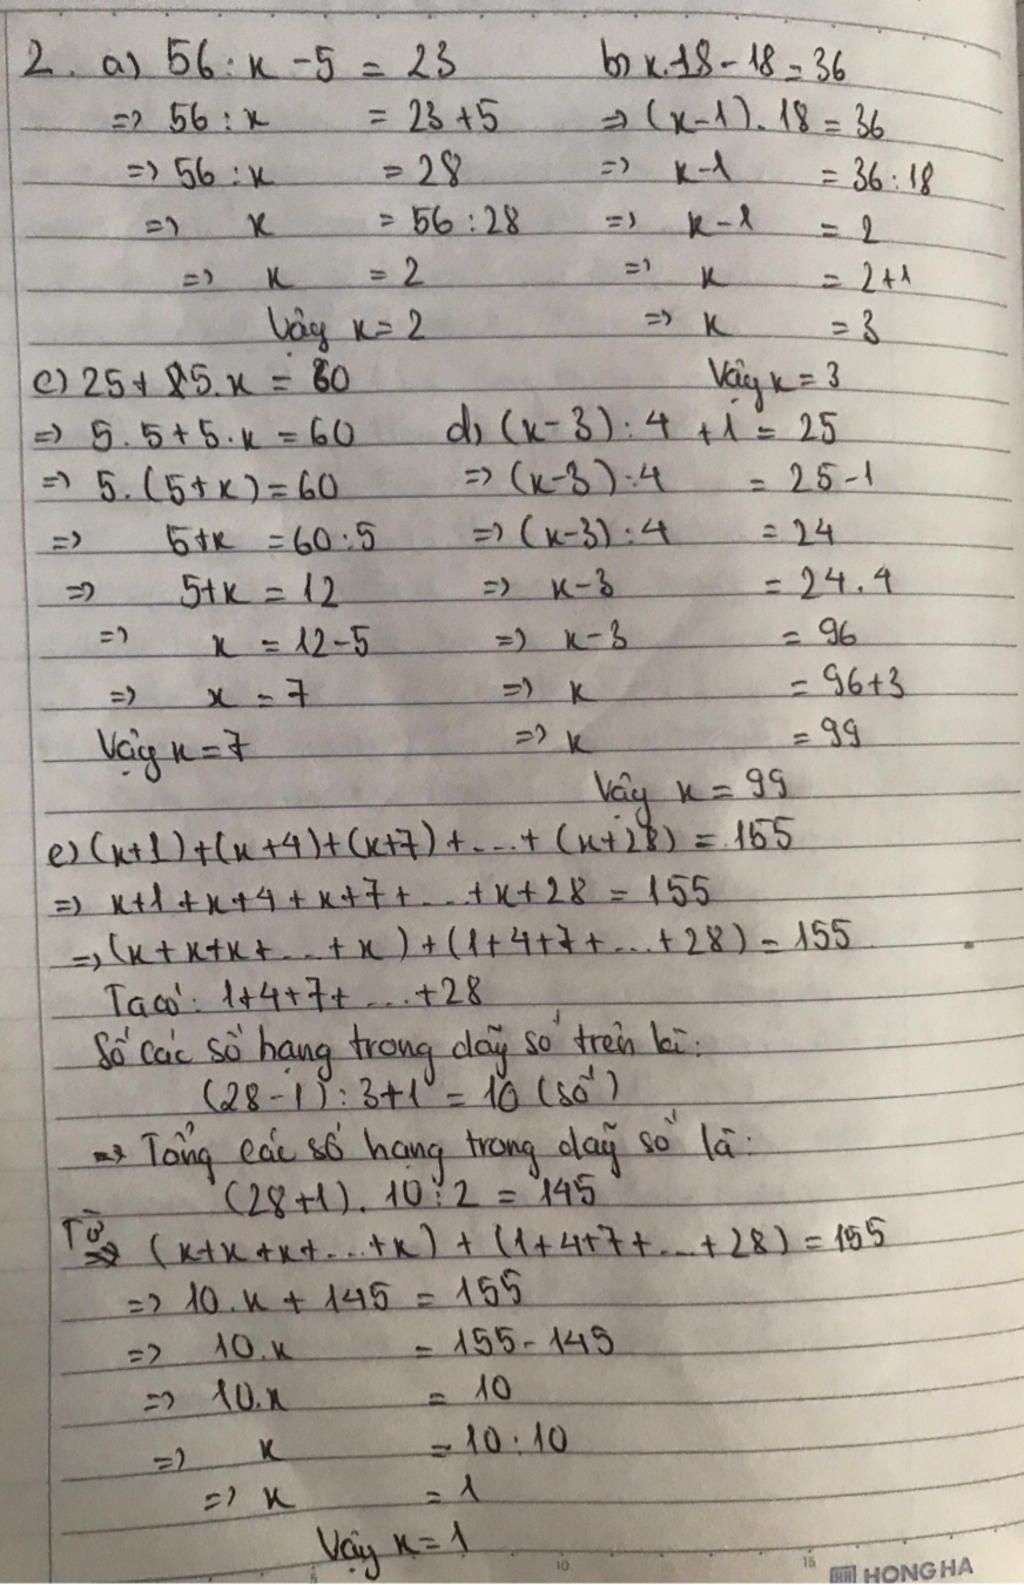 2. a) 56 : x - 5 = 23
=> 56 : x = 23 + 5
=> 56 : x = 28
=> x = 56 : 28
=> x = 2
Vậy x = 2
b) x.18 - 18 = 36
=> (x-1). 18 = 36
=> x-1 = 36 : 18
=> x-1 = 2
=> x = 2+1
=> x = 3
Vậy x = 3
c) 25 + 5.x = 60
=> 5.5 + 5.x = 60
=> 5.(5+x) = 60
=> 5+x = 60:5
=> 5+x = 12
=> x = 12-5
=> x = 7
Vậy x = 7
d) (x-3) : 4 + 1 = 25
=> (x-3) : 4 = 25-1
=> (x-3) : 4 = 24
=> x-3 = 24.4
=> x-3 = 96
=> x = 96+3
=> x = 99
Vậy x = 99
e) (x+1)+(x+4)+(x+7)+...+(x+28) = 155
=> x+1+x+4+x+7+...+x+28 = 155
=> (x+x+x+...+x)+(1+4+7+...+28) = 155
Ta có: 1+4+7+...+28
Số các số hạng trong dãy số trên là:
(28-1) : 3+1 = 10 (số)
=> Tổng các số hạng trong dãy số là:
(28+1). 10 : 2 = 145
Từ => (x+x+x+...+x) + (1+4+7+...+28) = 155
=> 10.x + 145 = 155
=> 10.x = 155-145
=> 10.x = 10
=> x = 10:10
=> x = 1
Vậy x = 1
5 10 15
HONG HA